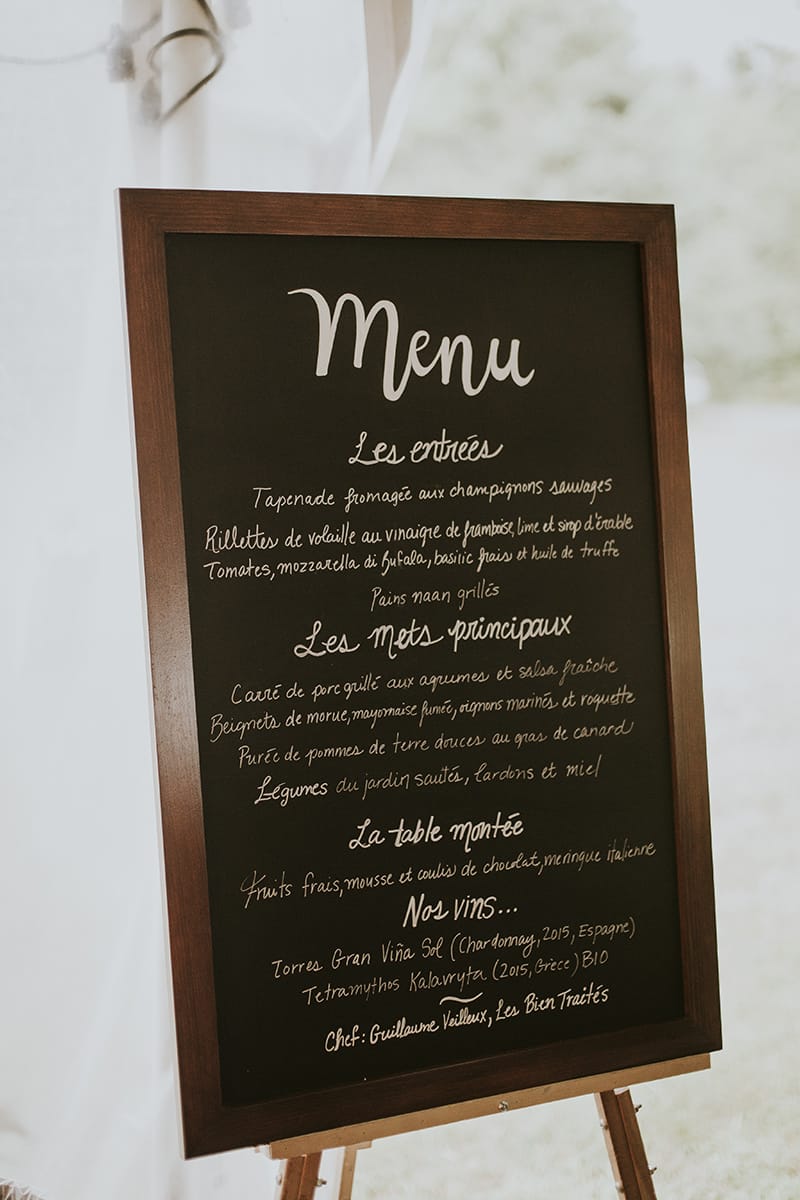 Menu
Les entrées
Tapenade fromagée aux champignons sauvages
Rillettes de volaille au vinaigre de framboise, lime et sirop d'érable
Tomates, mozzarella di Bufala, basilic frais et huile de truffe
Pains naan grillés
Les mets principaux
Carré de porc grillé aux agrumes et salsa fraîche
Beignets de morue, mayonnaise fumée, oignons marinés et roquette
Purée de pommes de terre douces au gras de canard
Légumes du jardin sautés, lardons et miel
La table montée
Fruits frais, mousse et coulis de chocolat, meringue italienne
Nos vins...
Torres Gran Viña Sol (Chardonnay, 2015, Espagne)
Tetramythos Kalavryta (2015, Grèce) BIO
Chef: Guillaume Veilleux, Les Bien Traités